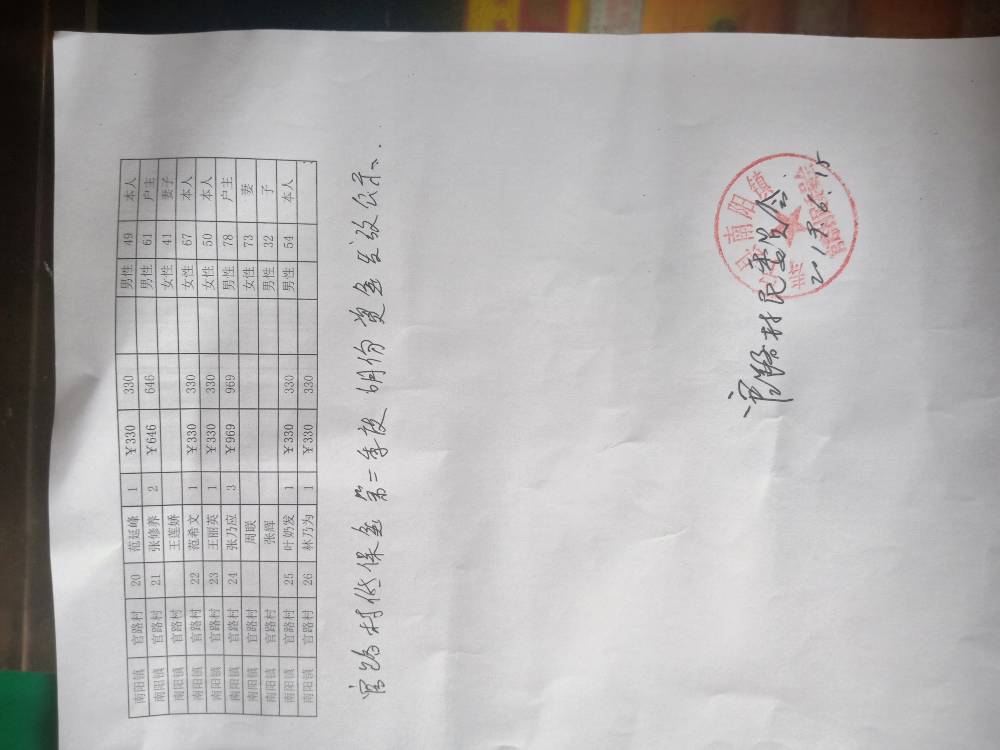 南阳镇 官路村 20 范延峰 1 ￥330 330 男性 49 本人
南阳镇 官路村 21 张修养 2 ￥646 646 男性 61 户主
南阳镇 官路村 王莲娇 女性 41 妻子
南阳镇 官路村 22 范希文 1 ￥330 330 女性 67 本人
南阳镇 官路村 23 王丽英 1 ￥330 330 女性 50 本人
南阳镇 官路村 24 张乃应 3 ￥969 969 男性 78 户主
南阳镇 官路村 周联 女性 73 妻
南阳镇 官路村 张辉 男性 32 子
南阳镇 官路村 25 叶奶发 1 ￥330 330 男性 54 本人
南阳镇 官路村 26 林乃为 1 ￥330 330
官路村低保金第二季度6月份资金发放公示
官路村民委员会
南阳镇